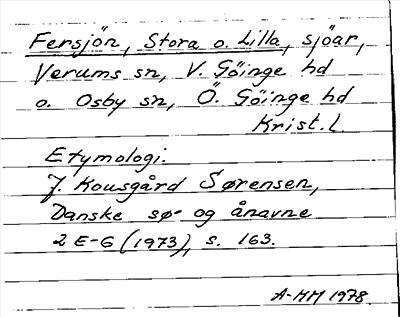 Fersjön, Stora o. Lilla, sjöar,
Verums sn, V. Göinge hd
o. Osby sn, Ö. Göinge hd
Krist. l
Etymologi.
J. Kousgård Sørensen,
Danske sø- og ånavne
2 E-G (1973), s. 163.
A-MM 1978.